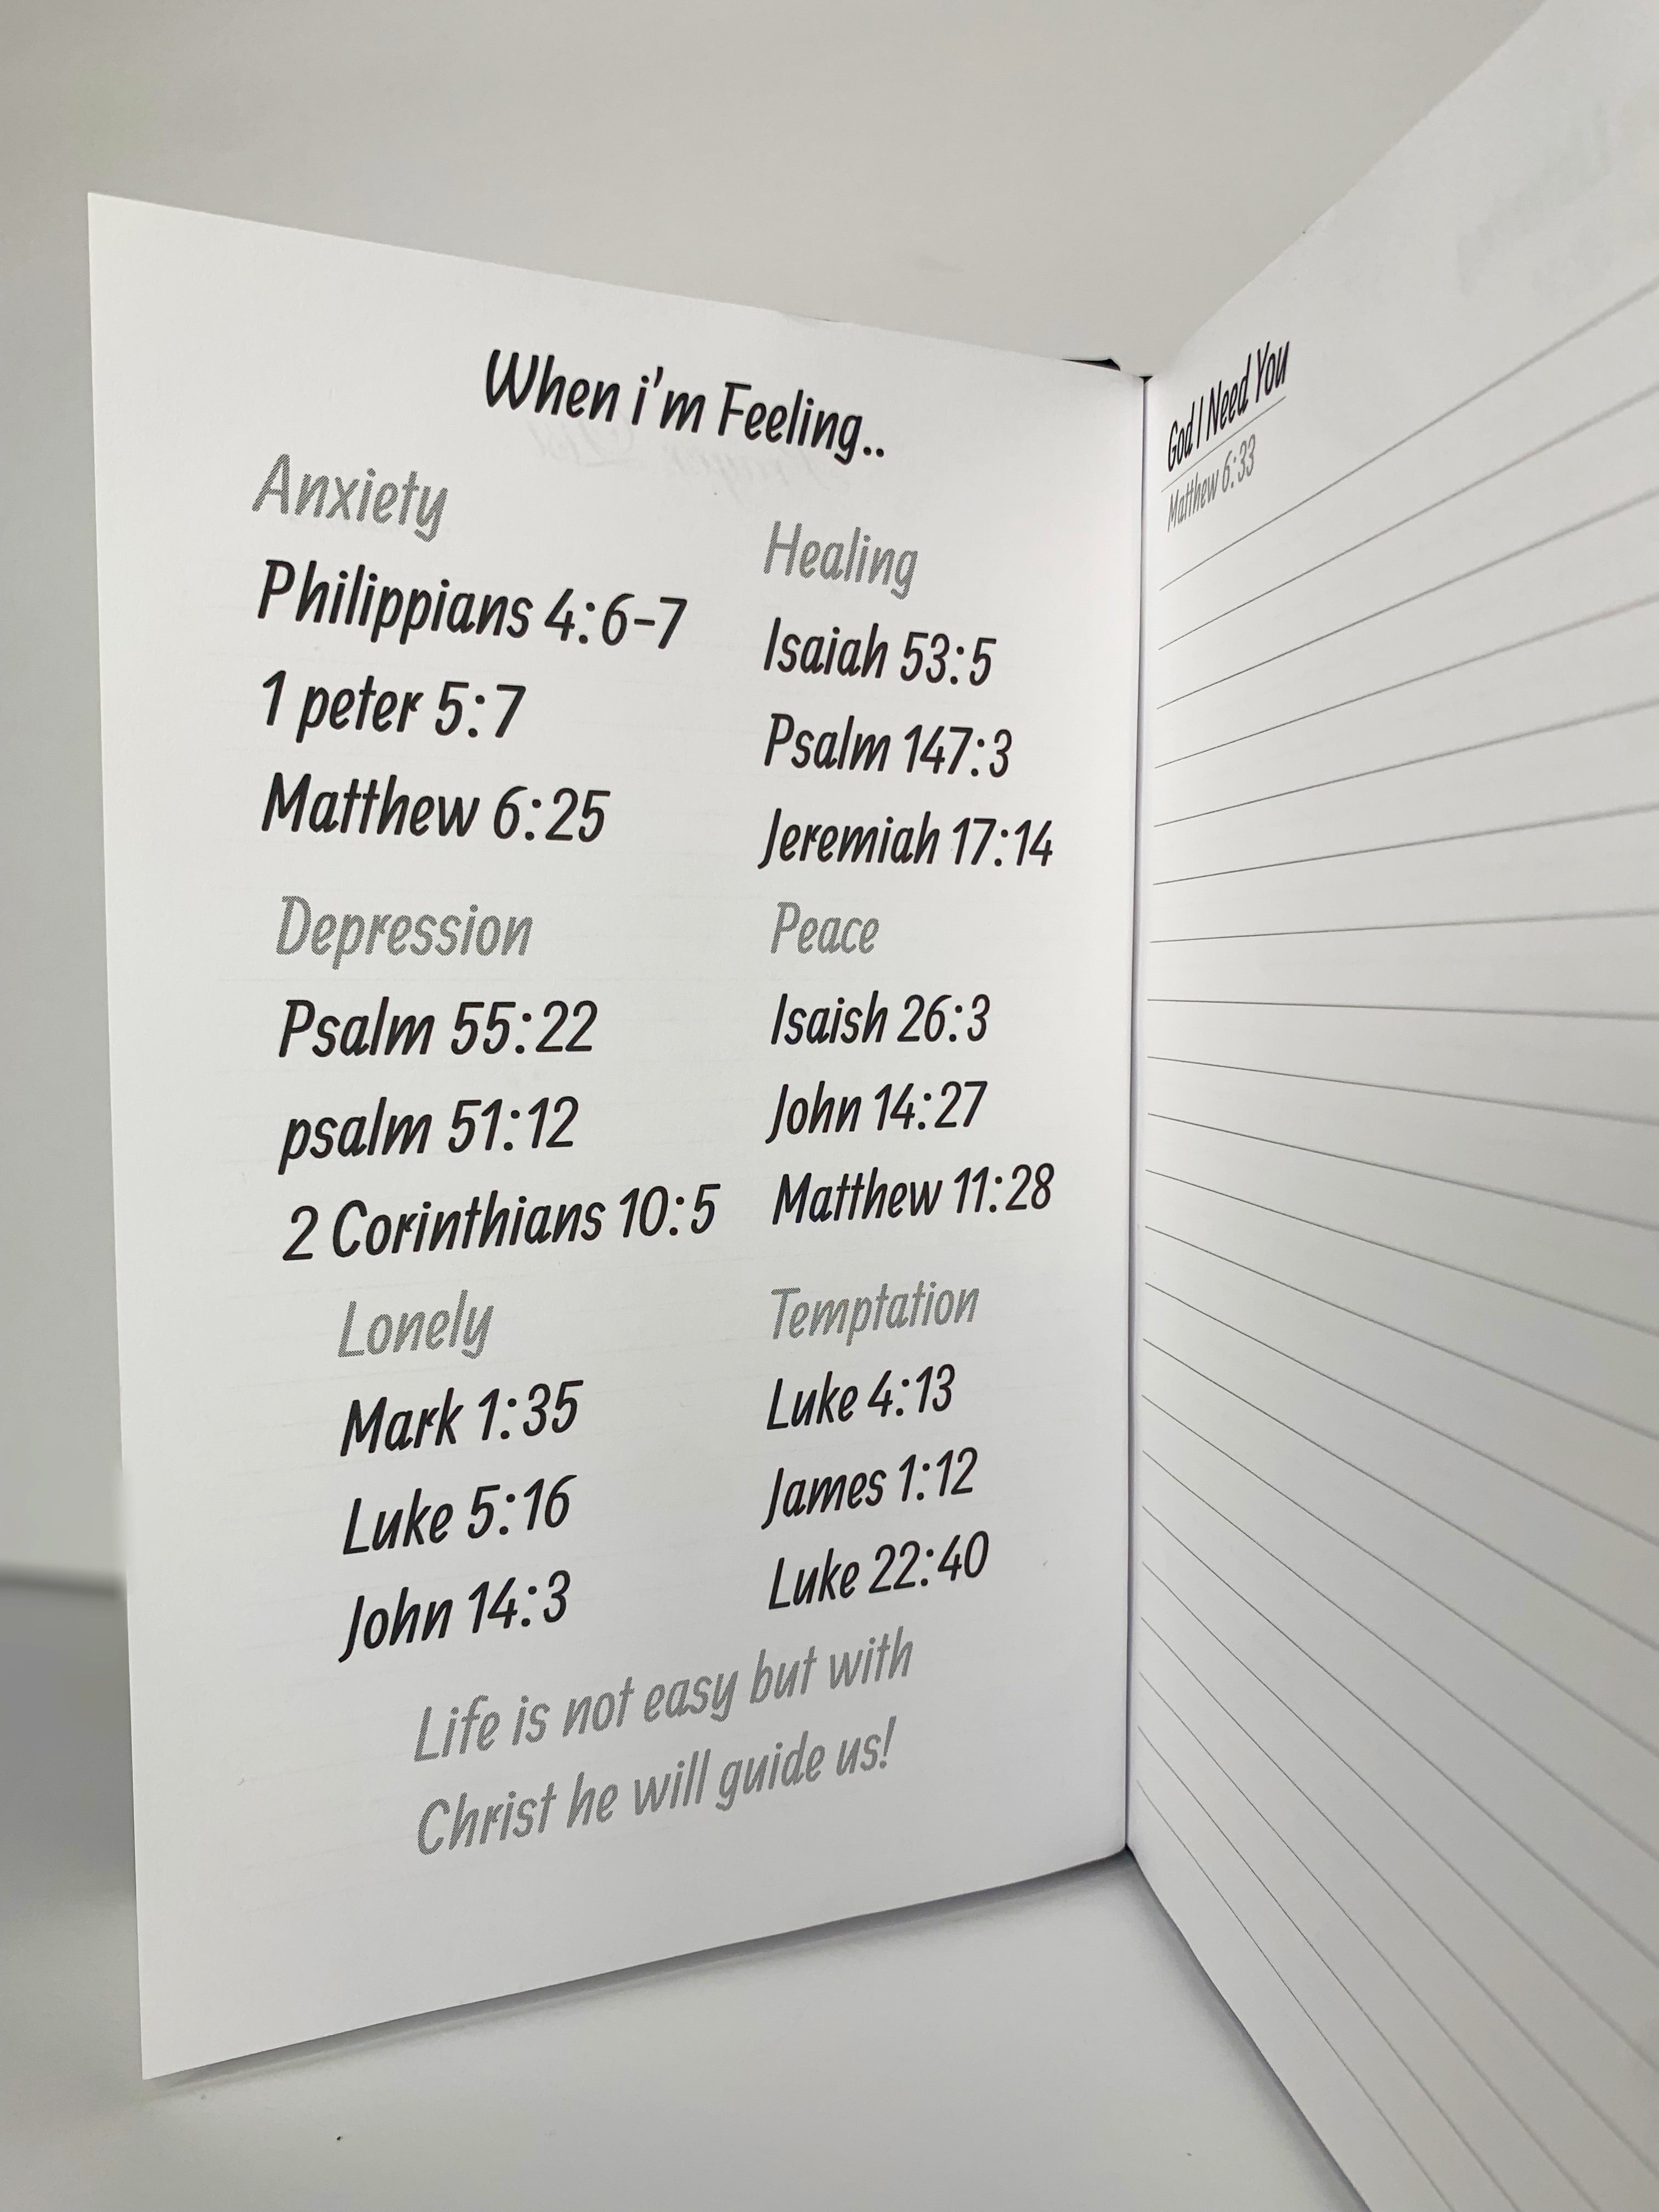 When i'm Feeling..
Anxiety
Philippians 4:6-7
1 peter 5:7
Matthew 6:25
Depression
Psalm 55:22
psalm 51:12
2 Corinthians 10:5
Lonely
Mark 1:35
Luke 5:16
John 14:3
Healing
Isaiah 53:5
Psalm 147:3
Jeremiah 17:14
Peace
Isaish 26:3
John 14:27
Matthew 11:28
Temptation
Luke 4:13
James 1:12
Luke 22:40
Life is not easy but with
Christ he will guide us!
God I Need You
Matthew 6:33